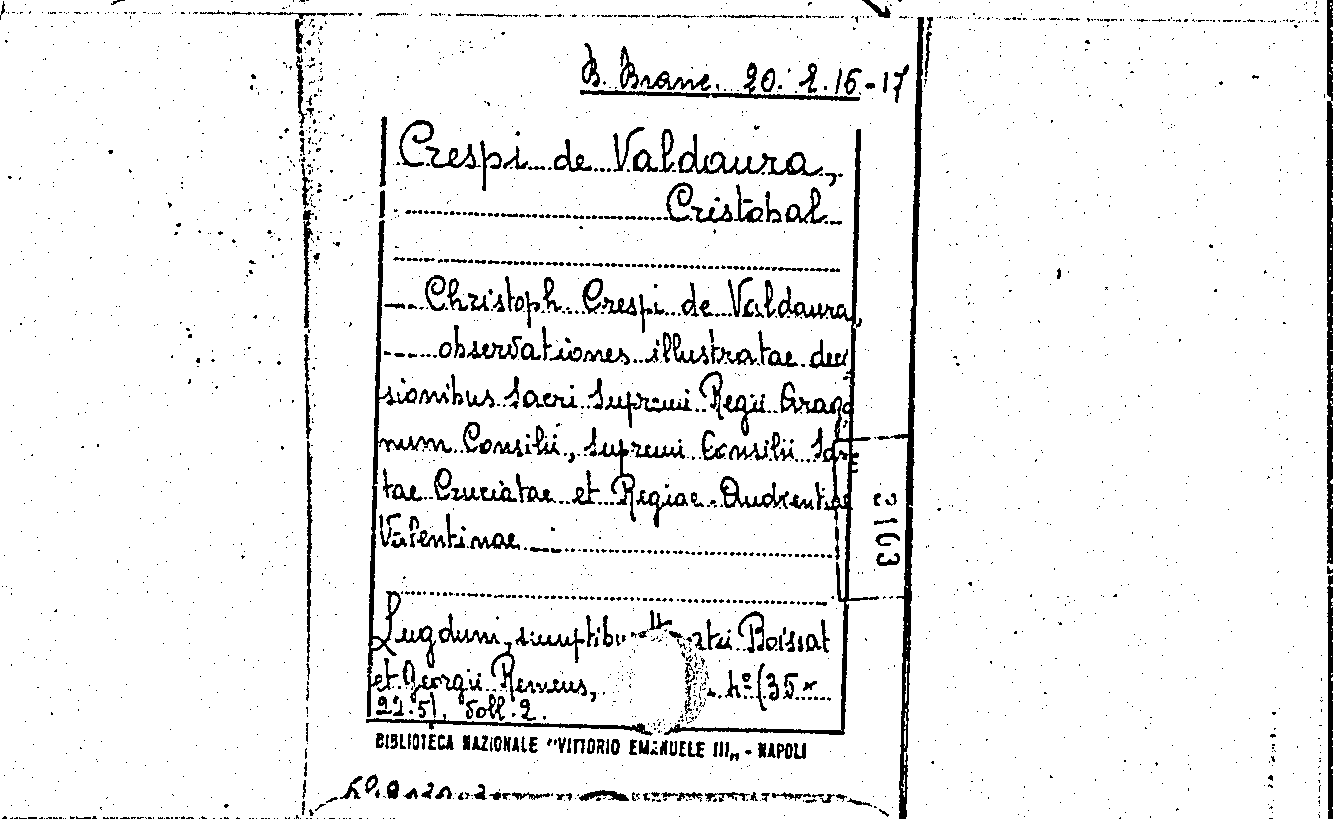 B. Branc. 20. 2. 16-17
Crespi de Valdaura,
Cristobal
Christoph Crespi de Valdaura,
observationes illustratae deci
sionibus Sacri Supremi Regii Arago
num Consilii, Supremi Consilii San
tae Cruciatae et Regiae Audientiae
Valentinae
3103
Lugduni, sumptibus Boissat
et Georgii Remeus, h° (35 x
22.5). voll. 2.
BIBLIOTECA NAZIONALE "VITTORIO EMANUELE III„ - NAPOLI